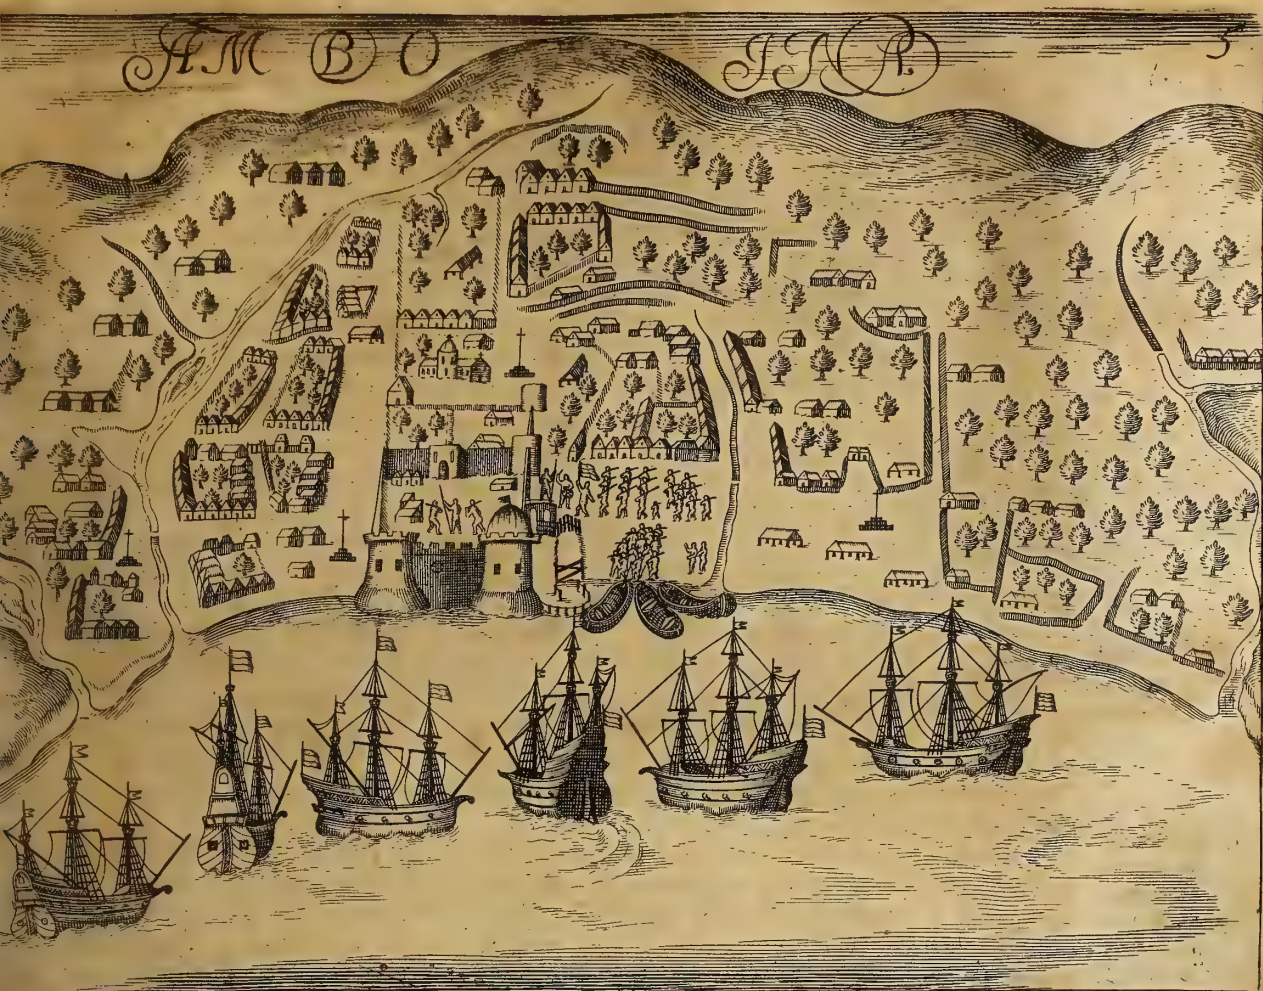 AMBO INA 5